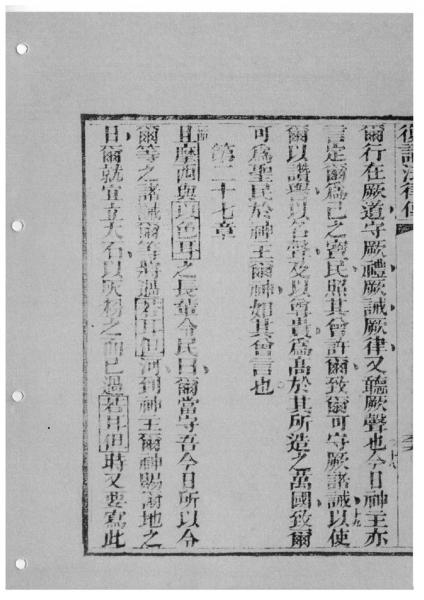 復講法律傳
爾行在厥道守厥禮厥誡厥律又聽厥聲也今日神主亦
十八
言定爾爲已之寶民照其曾許爾致爾可守厥諸誡以使
十九
爾以讚譽以名聲及以尊貴爲高於其所造之萬國致爾
可爲聖民於神主爾神如其曾言也
第二十七章
且摩西與以色耳之長輩令民曰爾當守吾今日所以令
爾等之諸誡爾等將過若耳但河到神主爾神賜爾地之
日爾就宜立大石以灰粉之而已過若耳但時又要寫此